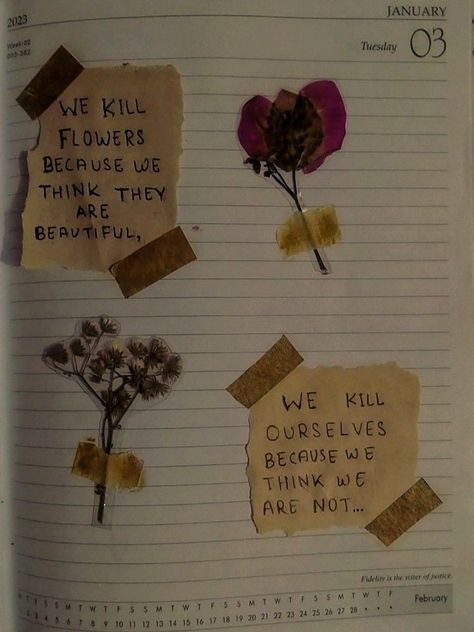 2023
JANUARY
Week-02
003-362
Tuesday 03
WE KILL
FLOWERS
BECAUSE WE
THINK THEY
ARE
BEAUTIFUL,
WE KILL
OURSELVES
BECAUSE WE
THINK WE
ARE NOT...
Fidelity is the sister of justice.
T F S S M T W T F S S M T W T F S S M T W T F S S M T W T F
February
4 5 6 7 8 9 10 11 12 13 14 15 16 17 18 19 20 21 22 23 24 25 26 27 28 • • •